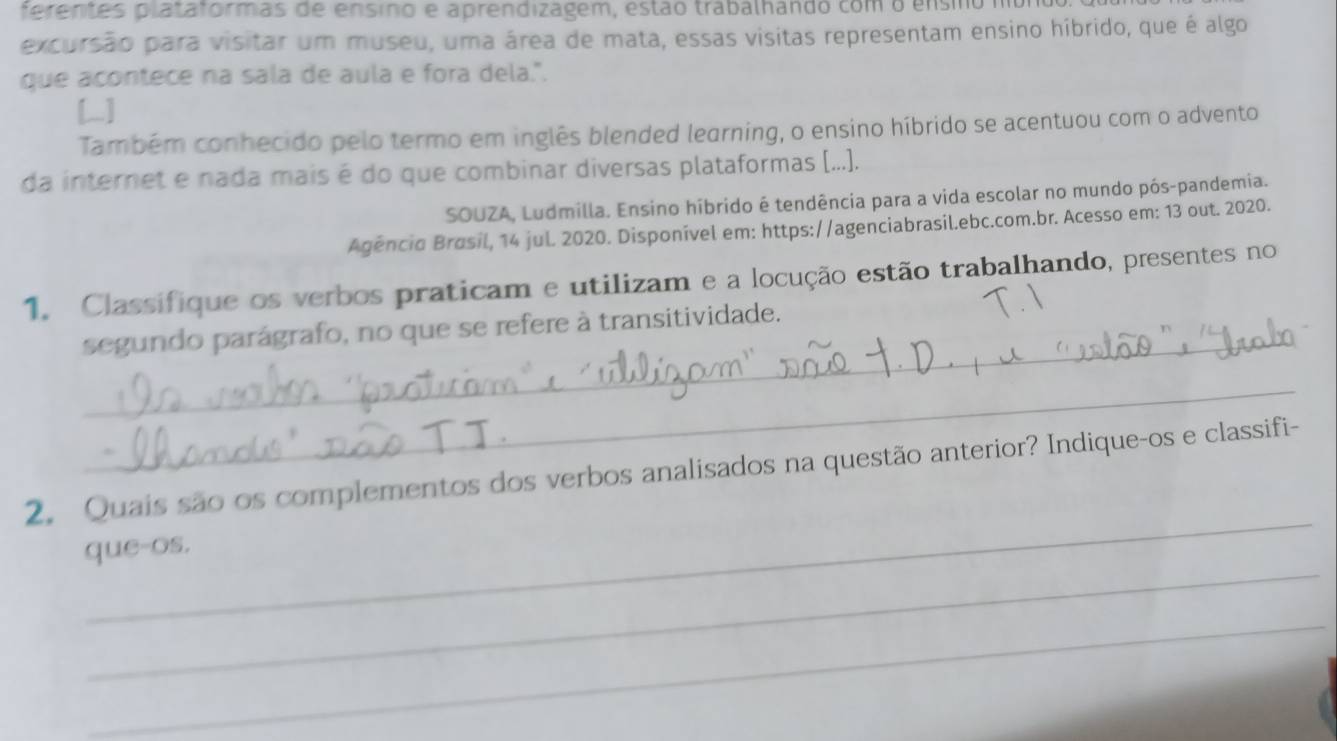 ferentes plataformas de ensino e aprendizagem, estão trabalhando com o ensino
excursão para visitar um museu, uma área de mata, essas visitas representam ensino híbrido, que é algo
que acontece na sala de aula e fora dela.".
[...]
Também conhecido pelo termo em inglês blended learning, o ensino híbrido se acentuou com o advento
da internet e nada mais é do que combinar diversas plataformas [...].
SOUZA, Ludmilla. Ensino híbrido é tendência para a vida escolar no mundo pós-pandemia.
Agência Brasil, 14 jul. 2020. Disponível em: https://agenciabrasil.ebc.com.br. Acesso em: 13 out. 2020.
1. Classifique os verbos praticam e utilizam e a locução estão trabalhando, presentes no
segundo parágrafo, no que se refere à transitividade.
T.I
Os verbos "praticam" e "utilizam" são T.D., e "estão" e "traba-
-lhando" são TI.
2. Quais são os complementos dos verbos analisados na questão anterior? Indique-os e classifi-
que-os.